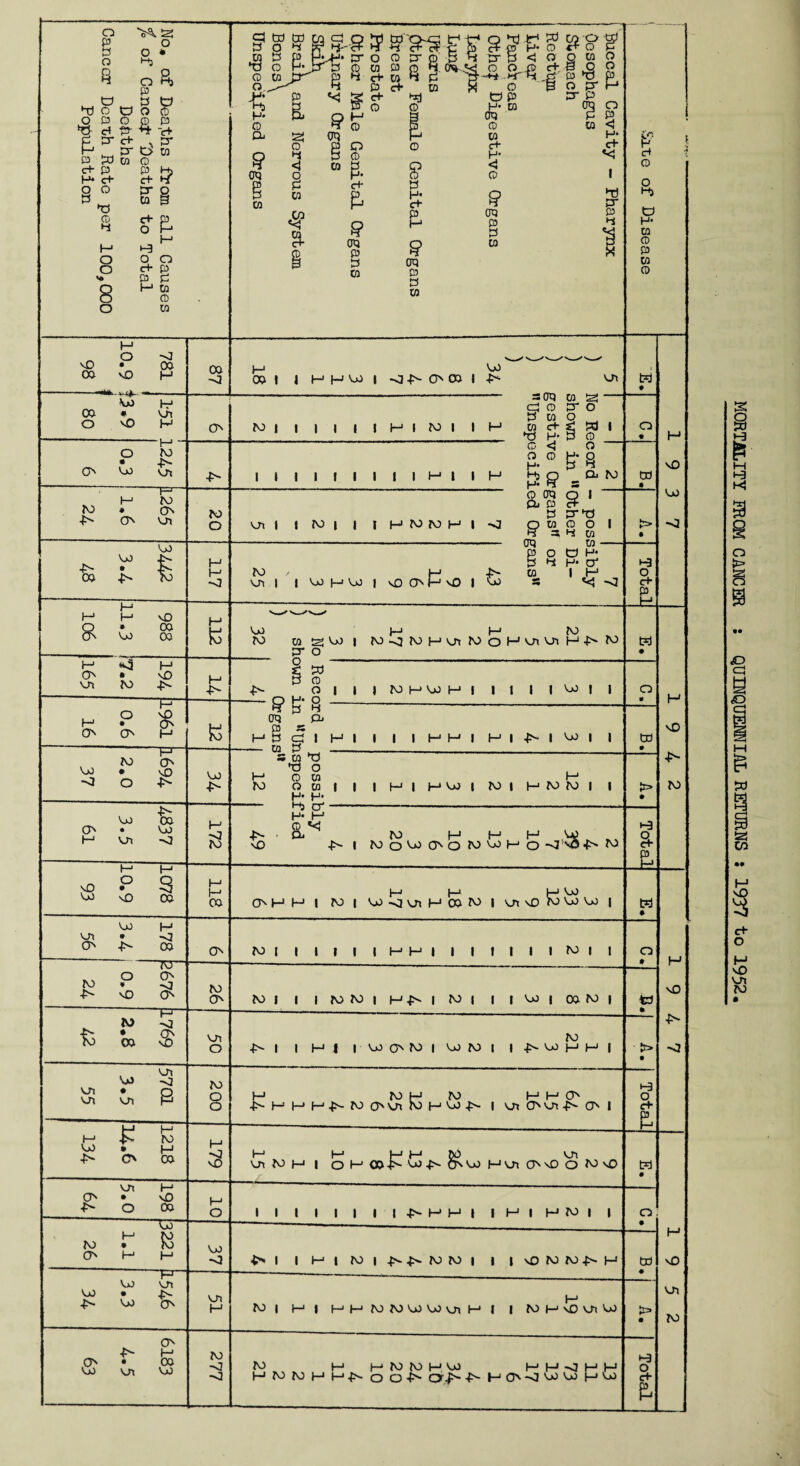 MORTALITY FROM CANCER : QUINQUENNIAL RETURNS : 1937 to 1952.
Site of Disease 1 9 3 7 1 9 4 2 1 9 4 7 1 9 5 2
E. C. B. A. Total E. C. B. A. Total E. C. B. A. Total E. C. B. A. Total
Buccal Cavity - Pharynx 5 - 2 - 7 2 - - - 2 - - - - - 9 - 1 3 13
Oesophagus ) No Record - possibly shown in "Other Digestive Organs" or "Unspecified Organs" 4 - - - 4 3 - 2 1 6 2 - 4 5 11
Stomach ) 21 3 3 12 39 33 2 8 21 64 50 2 2 19 73
Rectum ) 5 - - 2 7 12 - - 3 15 9 1 2 1 13
Liver ) 5 - 4 1 10 9 - 3 4 16 6 - 9 2 17
Pancreas ) 1 - - - 1 5 - - - 5 5 1 - - 6
Other Digestive Organs 34 1 1 7 43 10 - 1 2 13 - - - - - 1 - - - 1
Larynx - - - - - 2 - - - 2 2 - - 2 4 3 - - 1 4
Lung 8 - - 1 9 5 1 1 3 10 18 - 2 3 23 26 1 2 5 34
Uterus 6 2 1 2 11 1 3 1 1 6 1 - - - 1 4 1 2 3 10
Other Female Genital Organs 4 - - 2 6 2 1 - - 3 5 1 4 2 12 13 4 4 3 24
Breast 7 1 - 1 9 17 2 - 1 20 17 1 1 6 25 14 - 4 2 20
Prostate - - - - - 2 - - - 2 3 - - 3 6 8 - - 2 10
Other Male Genital Organs 3 - - - 3 - - - - - - - 2 - 2 1 - 2 1 4
Urinary Organs 1 - - - 1 3 - 1 - 4 2 - 2 - 4 10 - - 1 11
Skin 1 - - 2 3 ) No Record possibly shown in "Unspecified Organs" - - - 1 1 - - 1 - 1
Brain and Nervous System - - - - - ) 1 - - - 1 1 - - 1 2
Bones - - - - - ) 1 - - - 1 2 - - - 2
Unspecified Organs 18 2 - 5 25 32 4 1 12 49 6 2 2 4 14 15 - 4 2 21
87 6 4 20 117 112 14 12 34 172 118 6 26 50 200 179 10 37 51 277
No. of Deaths from all Causes 781 151 1245 1265 3442 988 194 1961 1694 4837 1078 178 2676 1769 5701 1218 198 3221 1546 6183
% of Cancer Deaths to Total Deaths 10.9 3.9 0.3 1.6 3.4 11.3 7.2 0.6 2.0 3.5 10.9 3.4 0.9 2.8 3.5 14.6 5.0 1.1 3.3 4.5
Cancer Death Rate per 100,000 Population 98 80 6 24 48 106 165 16 37 61 93 56 24 42 55 134 64 26 34 63